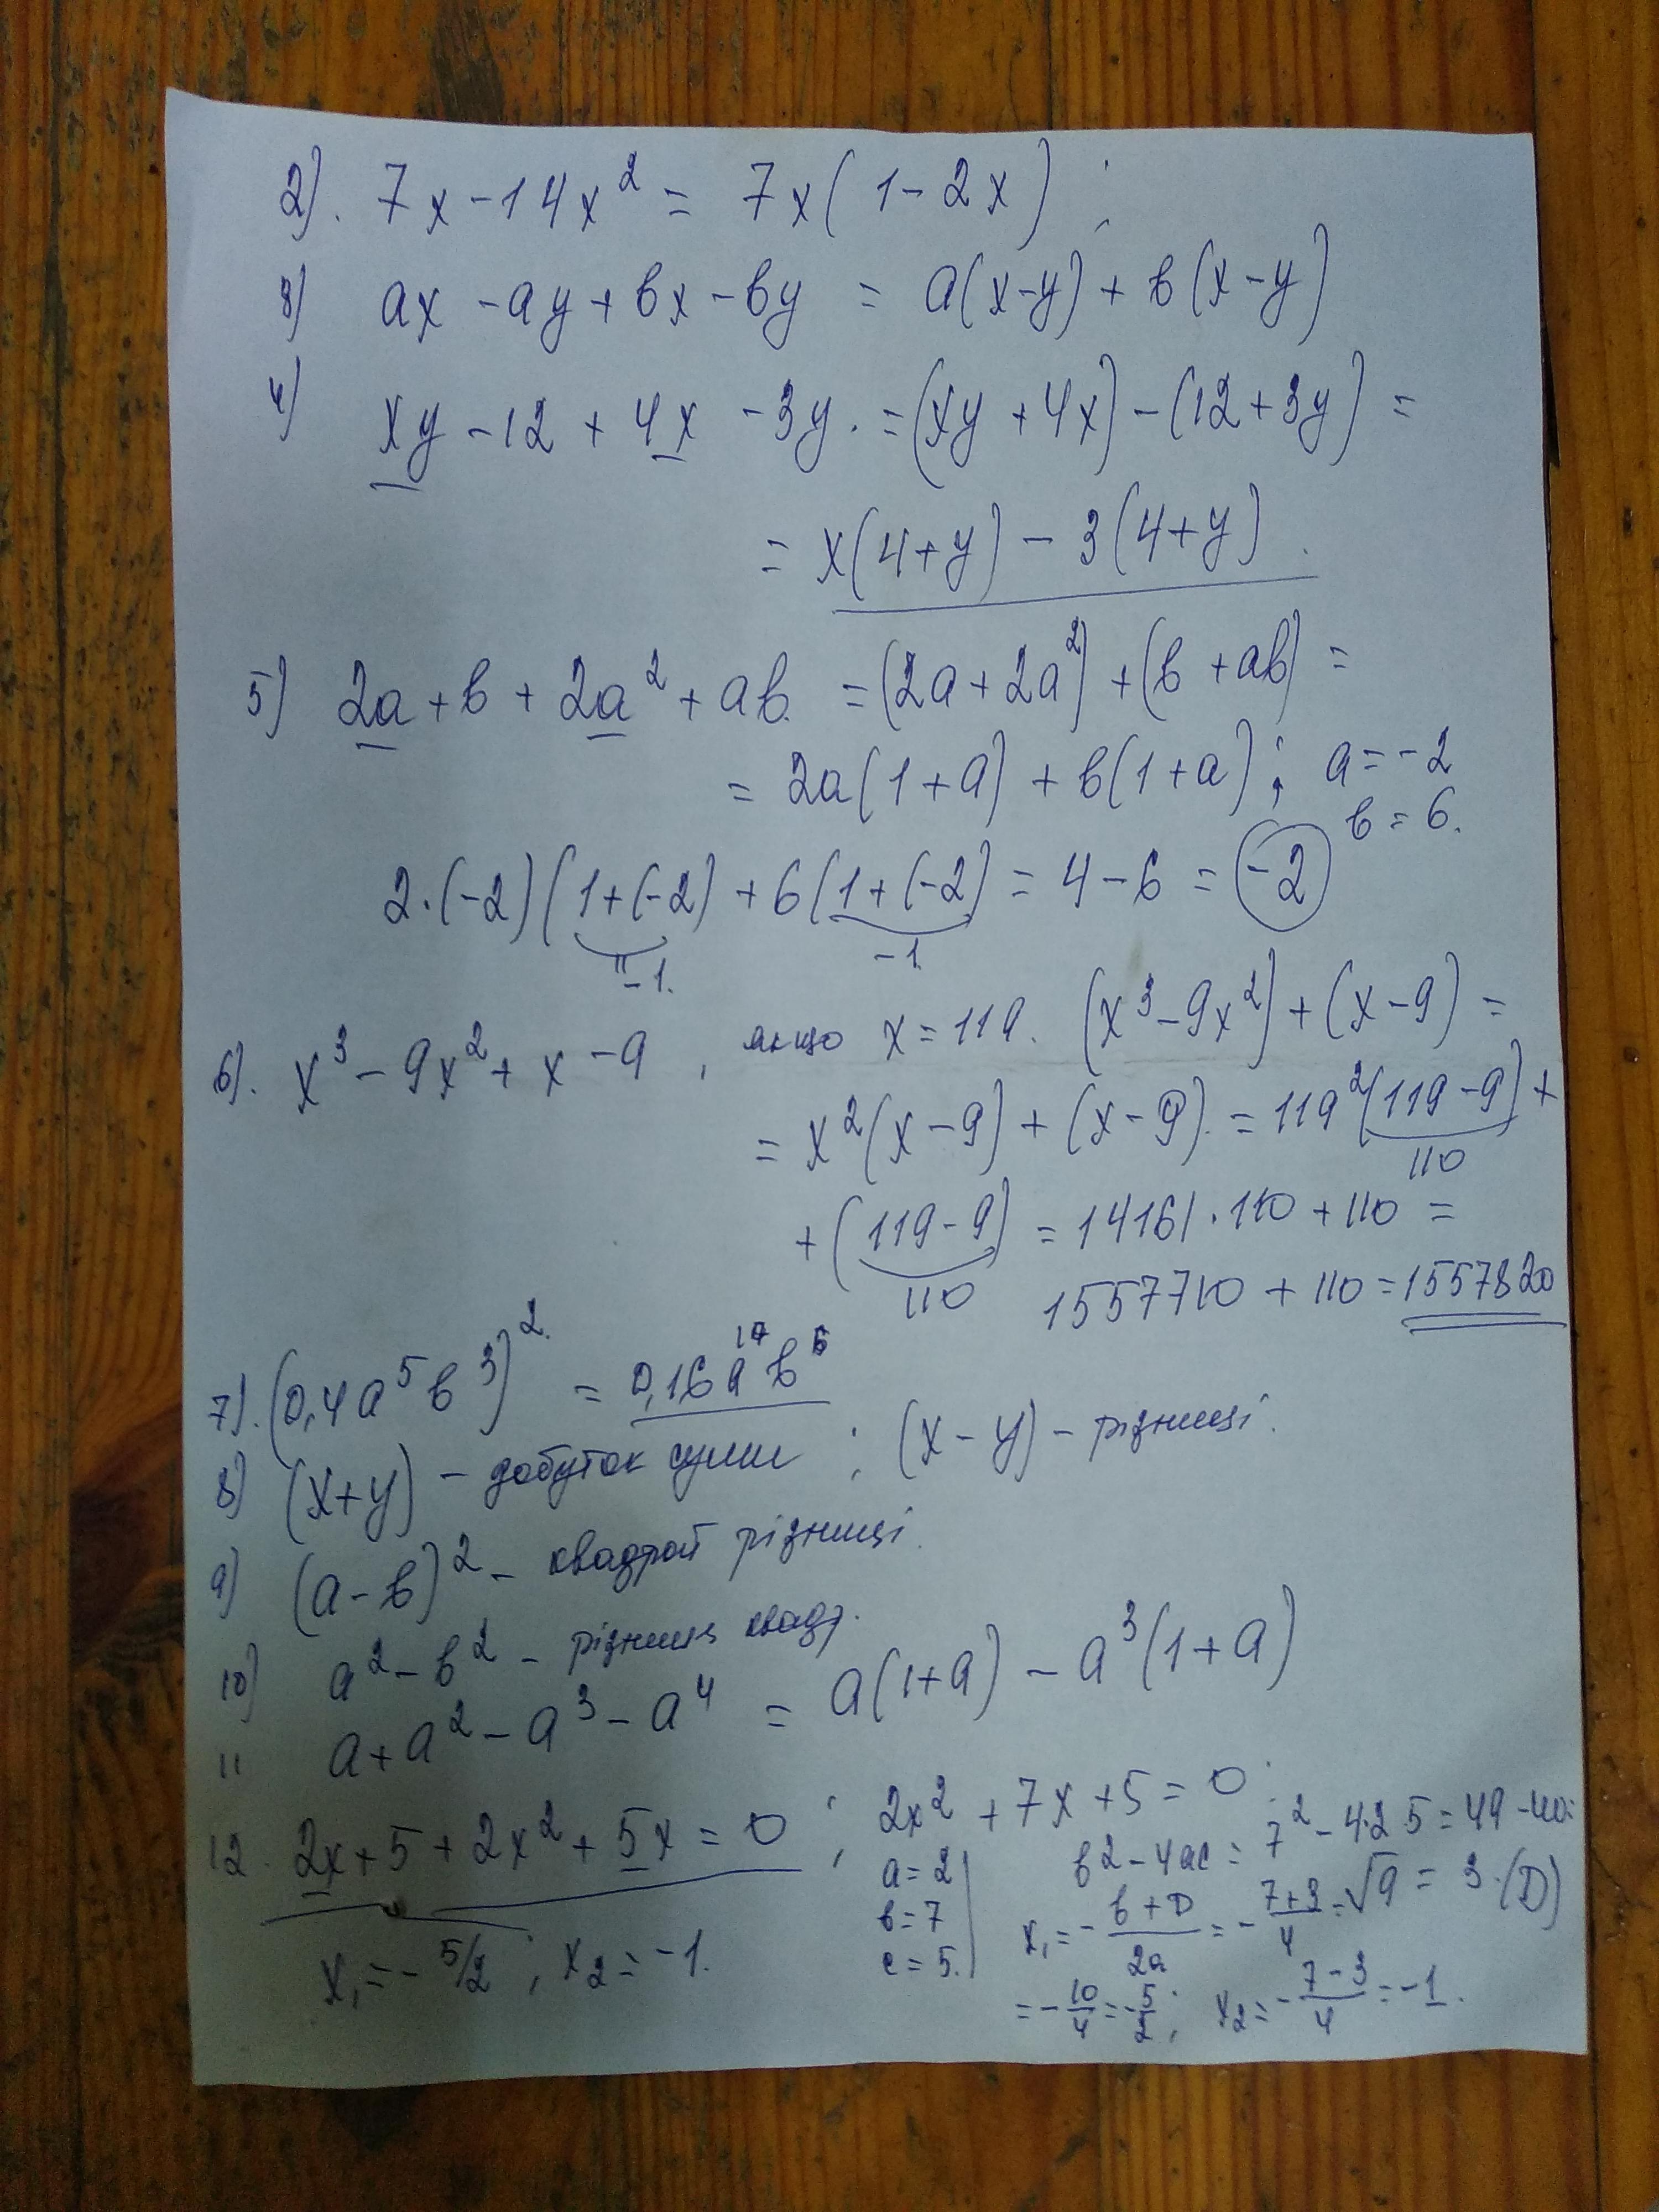 2). 7x - 14x² = 7x(1 - 2x) ;
3) ax - ay + bx - by = a(x-y) + b(x-y)
4) xy - 12 + 4x - 3y. = (xy + 4x) - (12 + 3y) =
= x(4+y) - 3(4+y).
5) 2a + b + 2a² + ab. = (2a + 2a²) + (b + ab) =
= 2a(1+a) + b(1+a) ; a = -2
b = 6.
2·(-2)(1+(-2) + 6(1+(-2) = 4 - 6 = -2
"-1. -1.
6). x³ - 9x² + x - 9 , якщо x = 119. (x³ - 9x²) + (x - 9) =
= x²(x - 9) + (x - 9). = 119²(119 - 9) +
110
+ (119 - 9) = 14161 · 110 + 110 =
110
1557710 + 110 = 1557820
7). (0,4a⁵b³)² = 0,16a¹⁰b⁶
8) (x+y) - добуток суми ; (x - y) - різниці.
9) (a - b)² - квадрат різниці.
10) a² - b² - різниця квадр.
11 a + a² - a³ - a⁴ = a(1+a) - a³(1+a)
12. 2x + 5 + 2x² + 5x = 0 ; 2x² + 7x + 5 = 0 ;
a = 2 b² - 4ac = 7² - 4·2 5 = 49 - 40 =
b = 7 x₁ = - b + D / 2a = - 7+3 / 4 = √9 = 3. (D)
c = 5.
x₁ = - 5/2 ; x₂ = -1. = - 10/4 = - 5/2 ; x₂ = - 7 - 3 / 4 = -1.